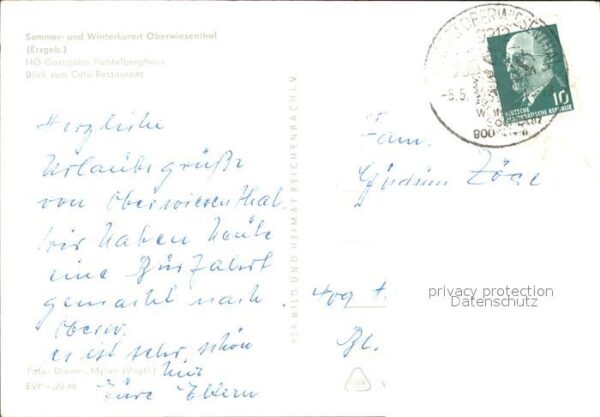 Sommer- und Winterkurort Oberwiesenthal
(Erzgeb.)
HO-Gaststätte Fichtelberghaus
Blick zum Café-Restaurant
Herzliche
Urlaubsgrüße
von Oberwiesenthal.
Wir haben heute
eine Busfahrt
gemacht nach
Oberw.
es ist sehr schön
hier
Eure Eltern
Foto: Dörner, Mylau (Vogtl.)
EVP -,20 M
VEB BILD UND HEIMAT REICHENBACH I. V.
OBERWIESENTHAL
-5.5.
900
10
DEUTSCHE
DEMOKRATISCHE REPUBLIK
Fam.
privacy protection
Datenschutz